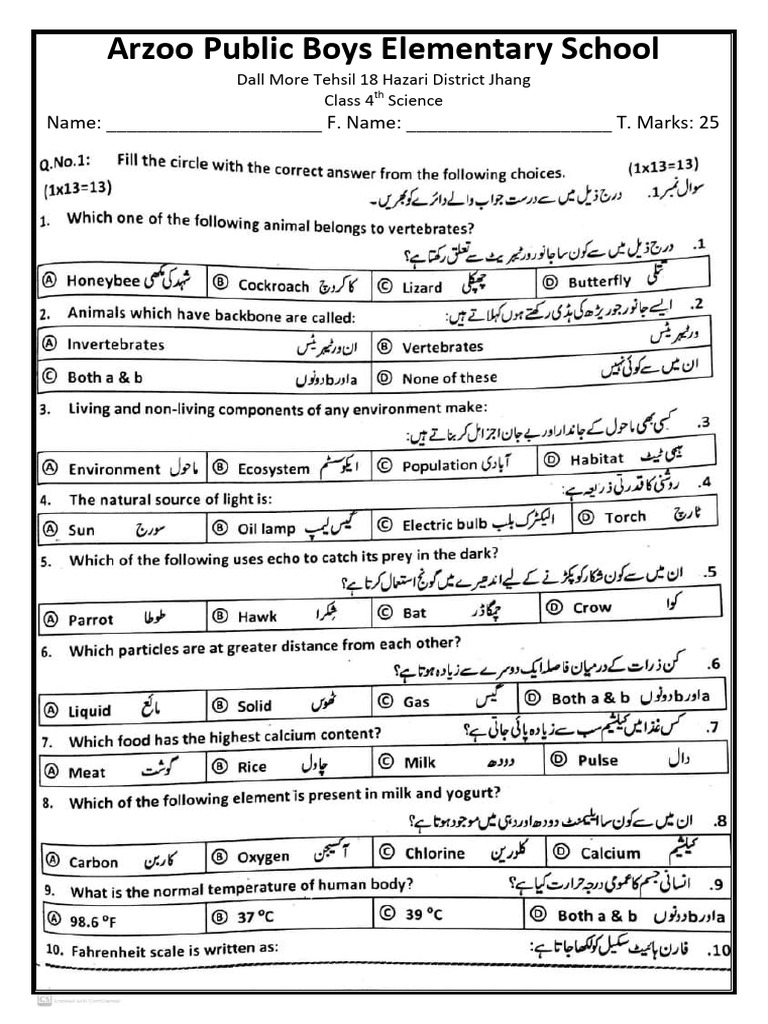 Arzoo Public Boys Elementary School
Dall More Tehsil 18 Hazari District Jhang
Class 4th Science
Name: ______________________ F. Name: _____________________ T. Marks: 25
Q.No.1: Fill the circle with the correct answer from the following choices. (1x13=13)
(1x13=13) سوال نمبر 1. درج ذیل میں سے درست جواب والے دائرے کو بھریں۔
1. Which one of the following animal belongs to vertebrates?
1. درج ذیل میں سے کون سا جانور ورٹیبریٹ سے تعلق رکھتا ہے؟
Ⓐ Honeybee شہد کی مکھی Ⓑ Cockroach کاکروچ Ⓒ Lizard چھپکلی Ⓓ Butterfly تتلی
2. Animals which have backbone are called: 2. ایسے جانور جو ریڑھ کی ہڈی رکھتے ہوں کہلاتے ہیں:
Ⓐ Invertebrates ان ورٹیبریٹس Ⓑ Vertebrates ورٹیبریٹس
Ⓒ Both a & b a اور b دونوں Ⓓ None of these ان میں سے کوئی نہیں
3. Living and non-living components of any environment make:
3. کسی بھی ماحول کے جاندار اور بے جان اجزا مل کر بناتے ہیں:
Ⓐ Environment ماحول Ⓑ Ecosystem ایکوسسٹم Ⓒ Population آبادی Ⓓ Habitat ہیبی ٹیٹ
4. The natural source of light is: 4. روشنی کا قدرتی ذریعہ ہے:
Ⓐ Sun سورج Ⓑ Oil lamp گیس لیمپ Ⓒ Electric bulb الیکٹرک بلب Ⓓ Torch ٹارچ
5. Which of the following uses echo to catch its prey in the dark?
5. ان میں سے کون شکار کو پکڑنے کے لیے اندھیرے میں گونج استعمال کرتا ہے؟
Ⓐ Parrot طوطا Ⓑ Hawk شِکرا Ⓒ Bat چمگادڑ Ⓓ Crow کوا
6. Which particles are at greater distance from each other?
6. کن ذرات کے درمیان فاصلہ ایک دوسرے سے زیادہ ہوتا ہے؟
Ⓐ Liquid مائع Ⓑ Solid ٹھوس Ⓒ Gas گیس Ⓓ Both a & b a اور b دونوں
7. Which food has the highest calcium content? 7. کس غذا میں کیلشیم سب سے زیادہ پائی جاتی ہے؟
Ⓐ Meat گوشت Ⓑ Rice چاول Ⓒ Milk دودھ Ⓓ Pulse دال
8. Which of the following element is present in milk and yogurt?
8. ان میں سے کون سا ایلیمنٹ دودھ اور دہی میں موجود ہوتا ہے؟
Ⓐ Carbon کاربن Ⓑ Oxygen آکسیجن Ⓒ Chlorine کلورین Ⓓ Calcium کیلشیم
9. What is the normal temperature of human body? 9. انسانی جسم کا عمومی درجہ حرارت کیا ہے؟
Ⓐ 98.6 °F Ⓑ 37 °C Ⓒ 39 °C Ⓓ Both a & b a اور b دونوں
10. Fahrenheit scale is written as: 10. فارن ہائیٹ سکیل کو لکھا جاتا ہے:
CS